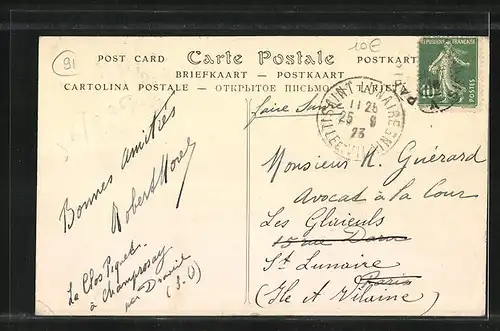 91
10€
POST CARD Carte Postale POSTKART
BRIEFKAART — POSTKAART
CARTOLINA POSTALE — ОТКРЫТОЕ ПИСЬМО
REPUBLIQUE FRANÇAISE
10
POSTES
PARIS
Faire Suivre
SAINT-LUNAIRE
11 25
25 9
23
ILLE-ET-VILAINE
Monsieur R. Guérard
Avocat à la Cour
Les
15 rue Daru
St Lunaire
Paris
(Ile et Vilaine)
Bonnes amitiés
Robert Morel
Le Clos Piquet
à Champrosay
par Draveil
(S.O)